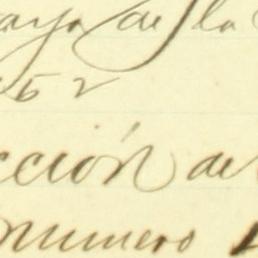 aya de la
52
cción de
numero